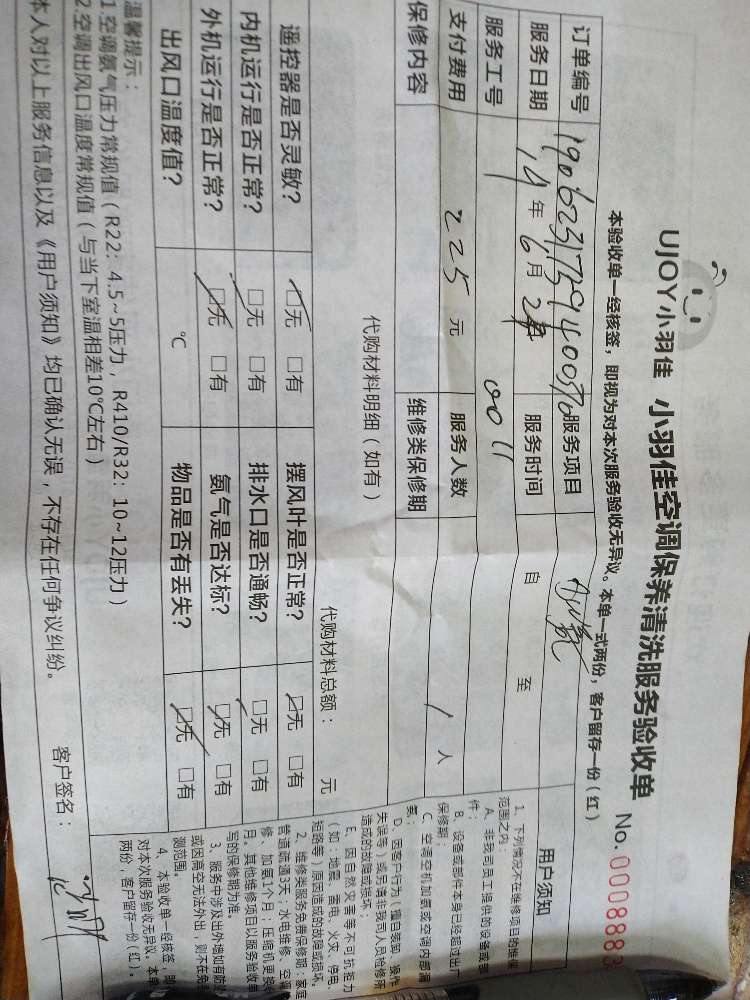 UJOY小羽佳 小羽佳空调保养清洗服务验收单 No.0008883
本验收单一经核签，即视为对本次服务验收无异议。本单一式两份，客户留存一份（红）
订单编号 服务项目 加氨
服务日期 19年6月 服务时间 自 至
服务工号 0011
支付费用 225元 服务人数 1人
保修内容 维修类保修期
代购材料明细（如有） 代购材料总额： 元
遥控器是否灵敏？ □无 □有 摆风叶是否正常？ □无 □有
内机运行是否正常？ □无 □有 排水口是否通畅？ □无 □有
外机运行是否正常？ □无 □有 氨气是否达标？ □无 □有
出风口温度值？ ℃ 物品是否有丢失？ □无 □有
温馨提示：
1空调氨气压力常规值（R22：4.5~5压力，R410/R32：10~12压力）
2空调出风口温度常规值（与当下室温相差10℃左右）
本人对以上服务信息以及《用户须知》均已确认无误，不存在任何争议纠纷。 客户签名：
用户须知
1、下列情况不在维修项目的维保
范围之内：
A、非我司员工提供的设备或部
件；
B、设备或部件本身已经超过出厂
保修期；
C、空调空机加氨或空调内部漏
氨；
D、因客户行为（擅自装卸、操作
失误等）或申请非我司人员检修所
造成的故障或损坏；
E、因自然灾害等不可抗拒力
（如：地震、蓄电、火灾、停电、
短路等）原因造成的故障或损坏。
2、维修类服务免费保修期：家庭
管道疏通3天；水电维修、空调维
修、加氨1个月；压缩机更换
月。其他维修项目以服务验收单
写的保修期为准。
3、服务中涉及出外墙如有防
或因高空无法外出，则不在免
测范围。
4、本验收单一经核签，即
对本次服务验收无异议。本单
两份，客户留存一份（红）。